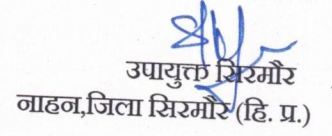 उपायुक्त सिरमौर
नाहन,जिला सिरमौर (हि. प्र.)